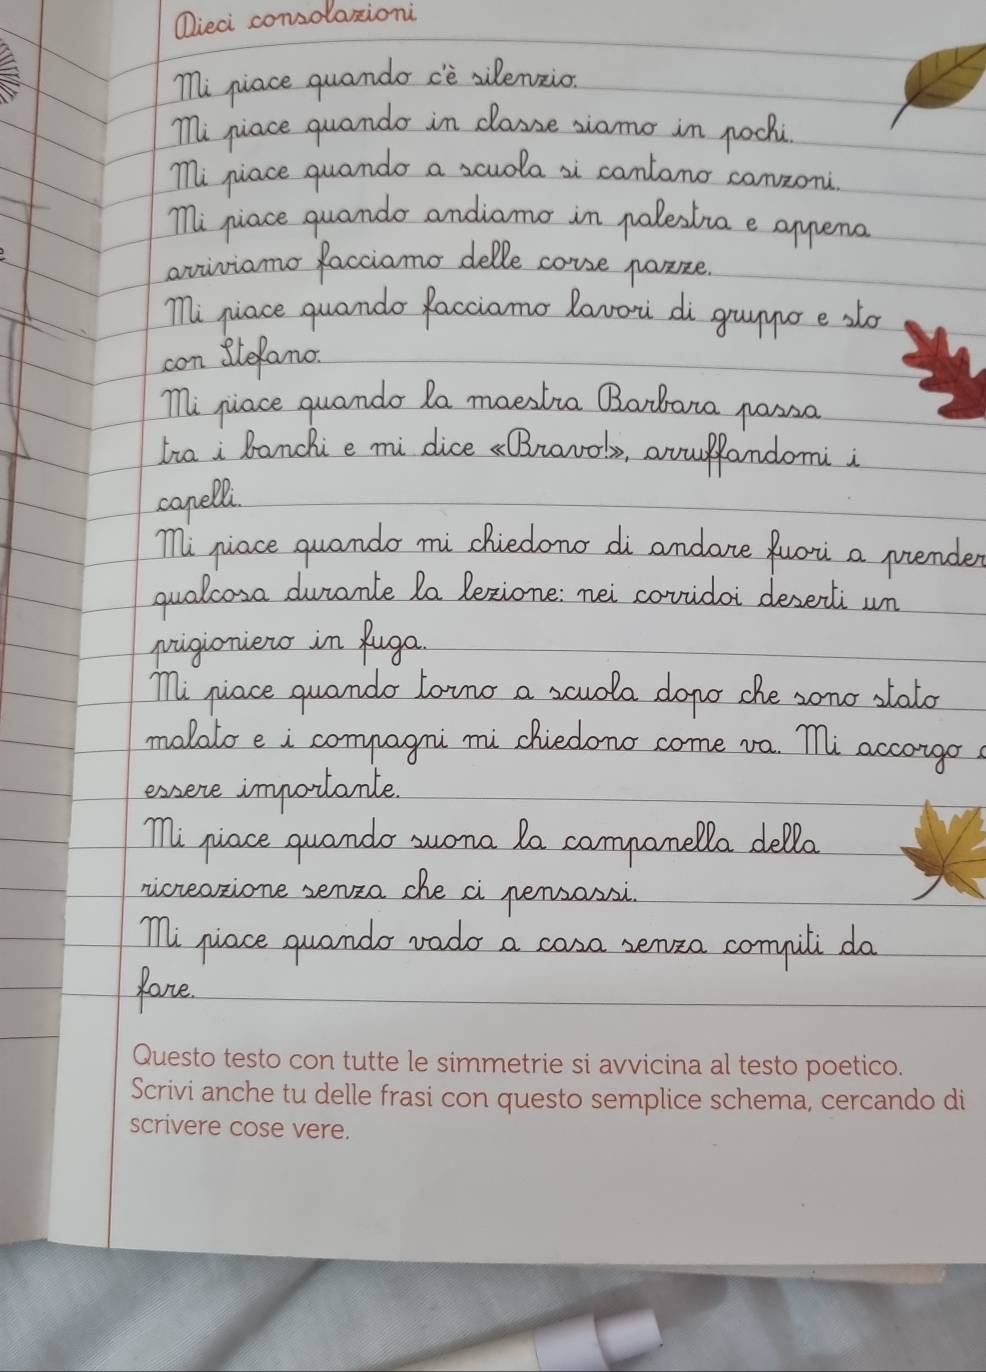 Dieci consolazioni
Mi piace quando c'è silenzio.
Mi piace quando in classe siamo in pochi.
Mi piace quando a scuola si cantano canzoni.
Mi piace quando andiamo in palestra e appena
arriviamo facciamo delle corse pazze.
Mi piace quando facciamo lavori di gruppo e sto
con Stefano.
Mi piace quando la maestra Barbara passa
tra i banchi e mi dice «Bravo!», arruffandomi i
capelli.
Mi piace quando mi chiedono di andare fuori a prender
qualcosa durante la lezione: nei corridoi deserti un
prigioniero in fuga.
Mi piace quando torno a scuola dopo che sono stato
malato e i compagni mi chiedono come va. Mi accorgo
essere importante.
Mi piace quando suona la campanella della
ricreazione senza che ci pensassi.
Mi piace quando vado a casa senza compiti da
fare.
Questo testo con tutte le simmetrie si avvicina al testo poetico.
Scrivi anche tu delle frasi con questo semplice schema, cercando di
scrivere cose vere.